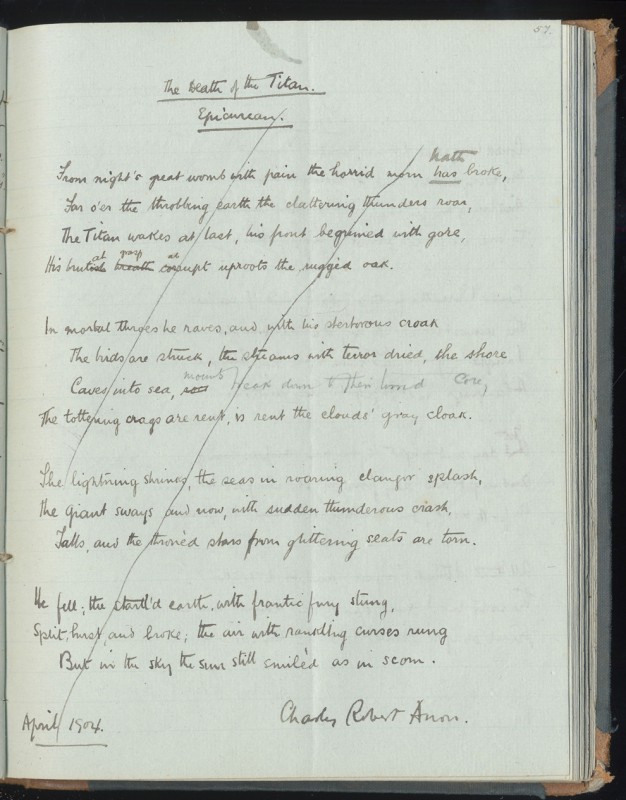 57.
The Death of the Titan.
Epicurean.
From night's great womb with pain the horrid morn has hath broke,
Far o'er the throbbing earth the clattering thunders roar,
The Titan wakes at last, his front begrimed with gore,
His at gasp at uproots the rugged oak.
In mortal throes he raves, and with his stertorous croak
The birds are struck, the streams with terror dried, the shore
Caves into sea, mounts break down to their core,
The tottering crags are rent, is rent the clouds' gray cloak.
The lightning shrinks, the seas in roaring clangor splash,
The giant sways and now, with sudden thunderous crash,
Falls, and the thronèd stars from glittering seats are torn.
He fell; the startl'd earth, with frantic fury stung,
Split, burst, and broke; the air with curses rung
But in the sky the sun still smilèd as in scorn.
April 1904.
Charles Robert Anon.